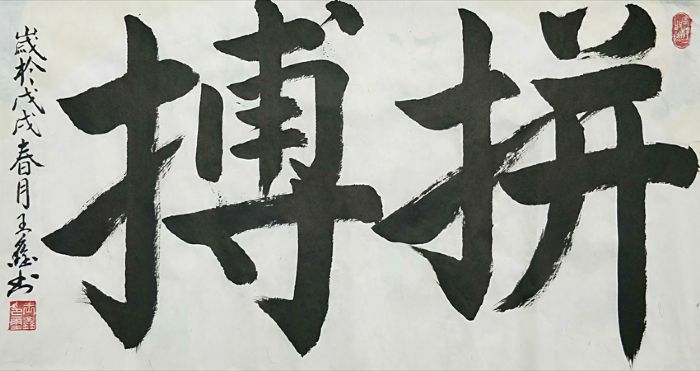 拼搏
歲於戊戌春月王鑫书